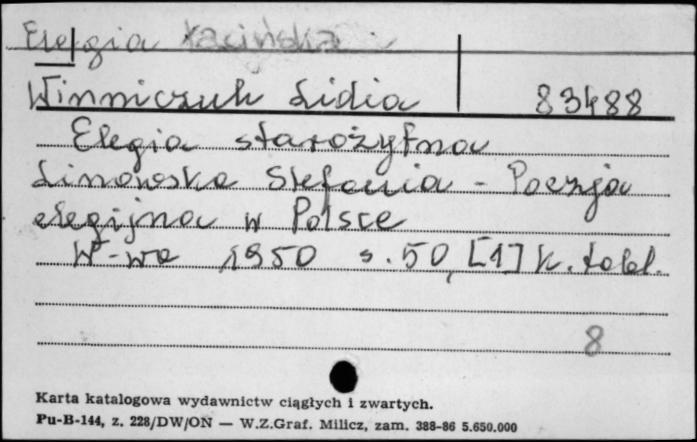 Elegia łacińska
Winniczuk Lidia 83488
Elegia starożytna
Linowska Stefania - Poezja
elegijna w Polsce
W-wa 1950 s. 50, [1] k. tabl.
8
Karta katalogowa wydawnictw ciągłych i zwartych.
Pu-B-144, z. 228/DW/ON — W.Z.Graf. Milicz, zam. 388-86 5.650.000